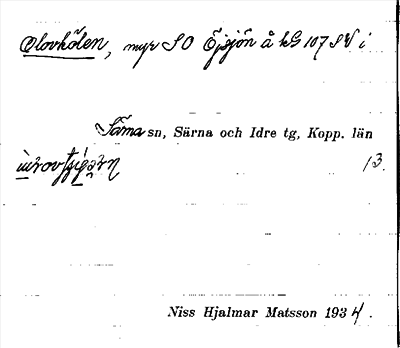 Olovhölen, myr SO Öjsjön å kG 107 SV i
Särna sn, Särna och Idre tg, Kopp. län
13.
Niss Hjalmar Matsson 1934.